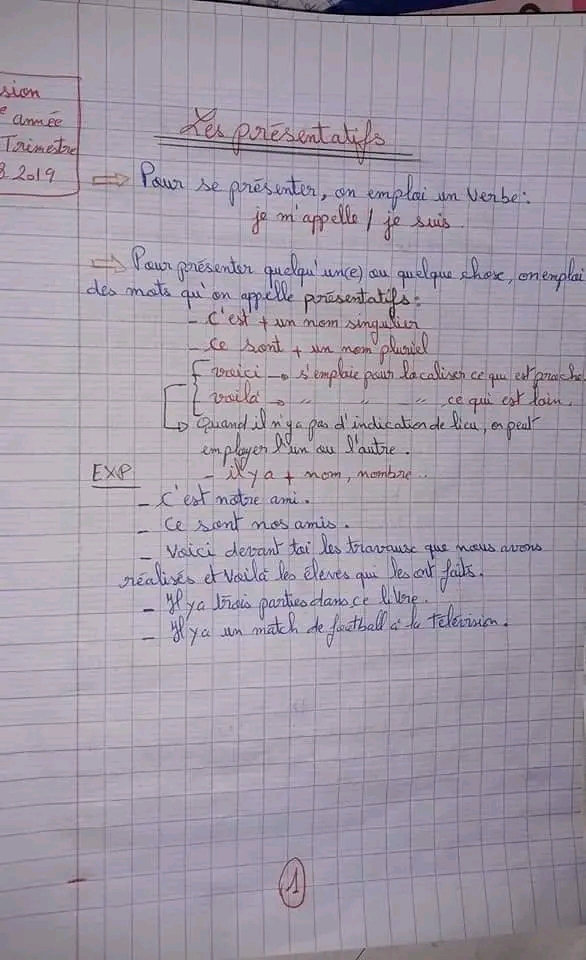 sion
e année
Trimestre
2019
Les présentatifs
⇒ Pour se présenter, on emploi un verbe :
je m'appelle / je suis
⇒ Pour présenter quelqu'un(e) ou quelque chose, on emploi
des mots qu'on appelle présentatifs :
- C'est + un nom singulier
- Ce sont + un nom pluriel
voici → s'emploie pour localiser ce qui est proche
voilà → " " " ce qui est loin.
↳ Quand il n'y a pas d'indication de lieu, on peut
employer l'un ou l'autre.
- il y a + nom, nombre..
EXP
- C'est notre ami.
- Ce sont nos amis.
- Voici devant toi les travause que nous avons
réalisés et Voilà les élèves qui les ont faits.
- Il y a trois parties dans ce livre.
- Il y a un match de football à la télévision.
1